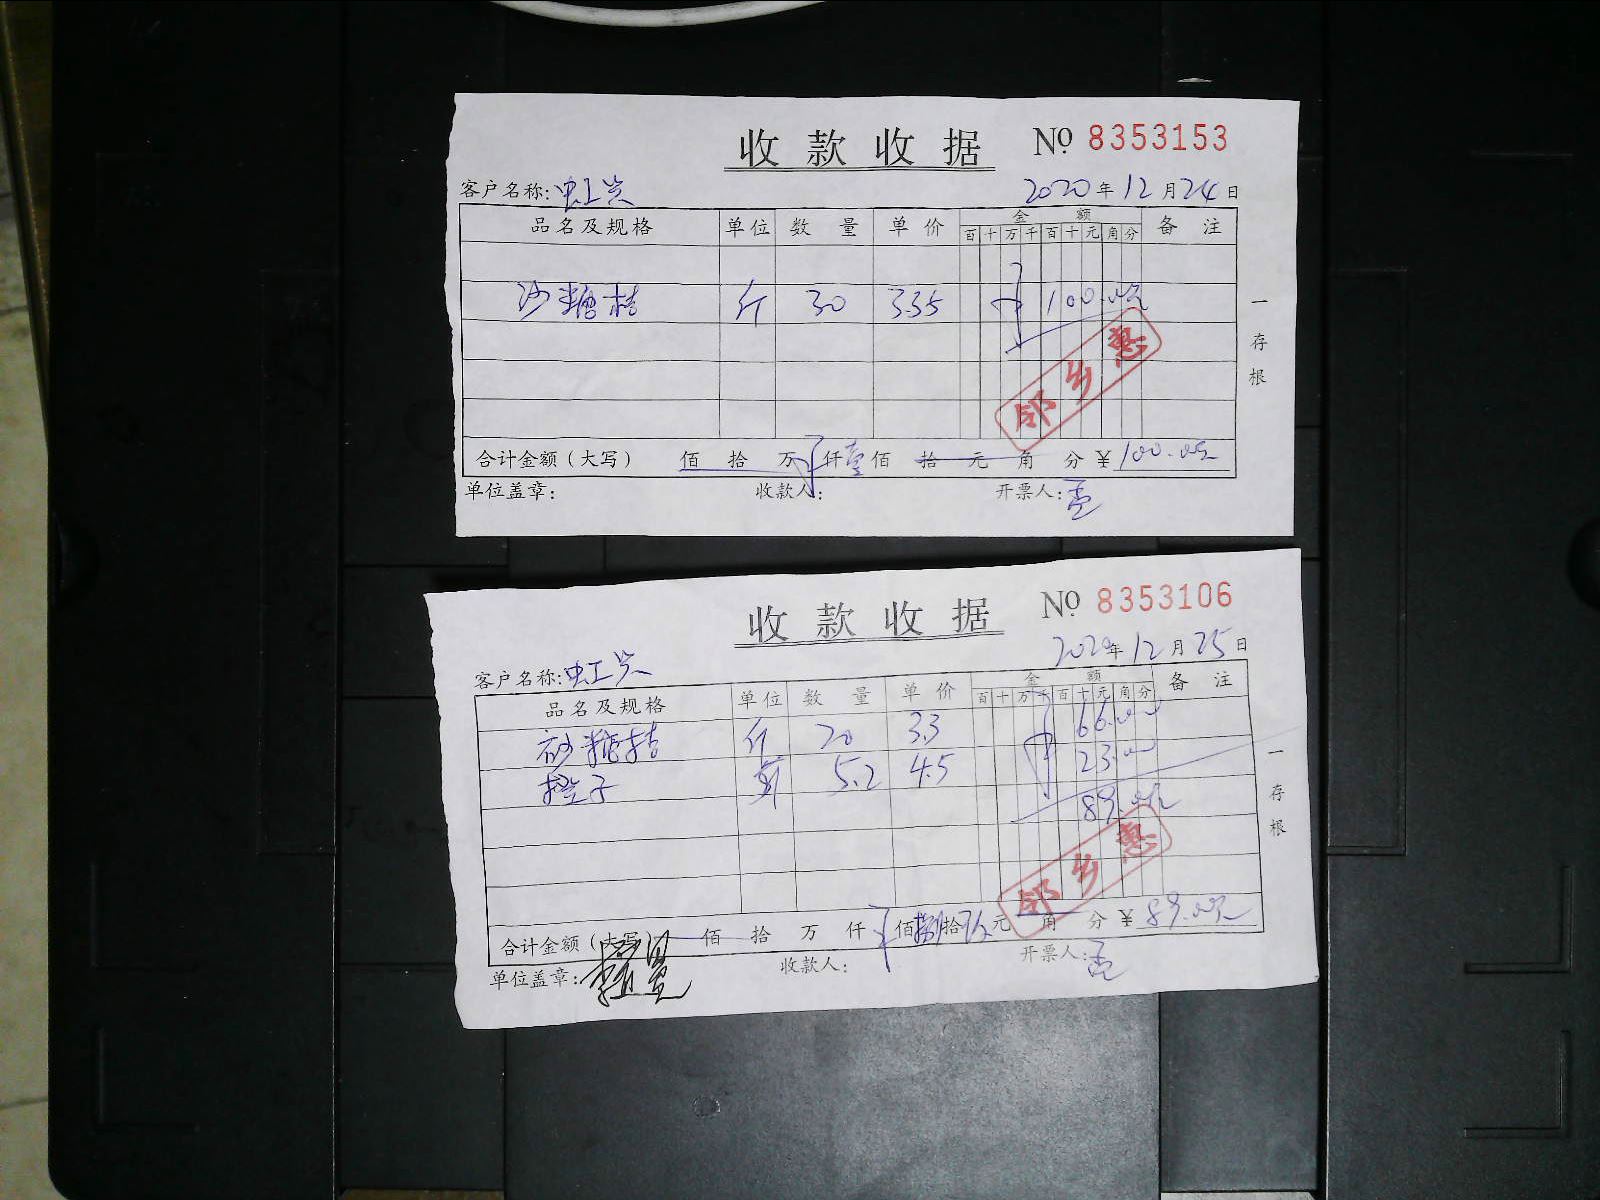 收款收据 No 8353153
客户名称：虹兴 2020年12月24日
品名及规格 单位 数量 单价 金额 备注
百十万千百十元角分
沙糖桔 斤 30 3.35 100.00元
一存根
邻乡惠
合计金额（大写） 佰 拾 万 仟壹佰 拾 元 角 分 ￥100.00元
单位盖章： 收款人： 开票人：孟
收款收据 No 8353106
客户名称：虹兴 2020年12月25日
品名及规格 单位 数量 单价 金额 备注
百十万千百十元角分
砂糖桔 斤 20 3.3 66.00
橙子 斤 5.2 4.5 23.00
89.00元
一存根
邻乡惠
合计金额（大写） 佰 拾 万 仟 佰捌拾玖元 角 分 ￥89.00元
单位盖章： 收款人： 开票人：孟